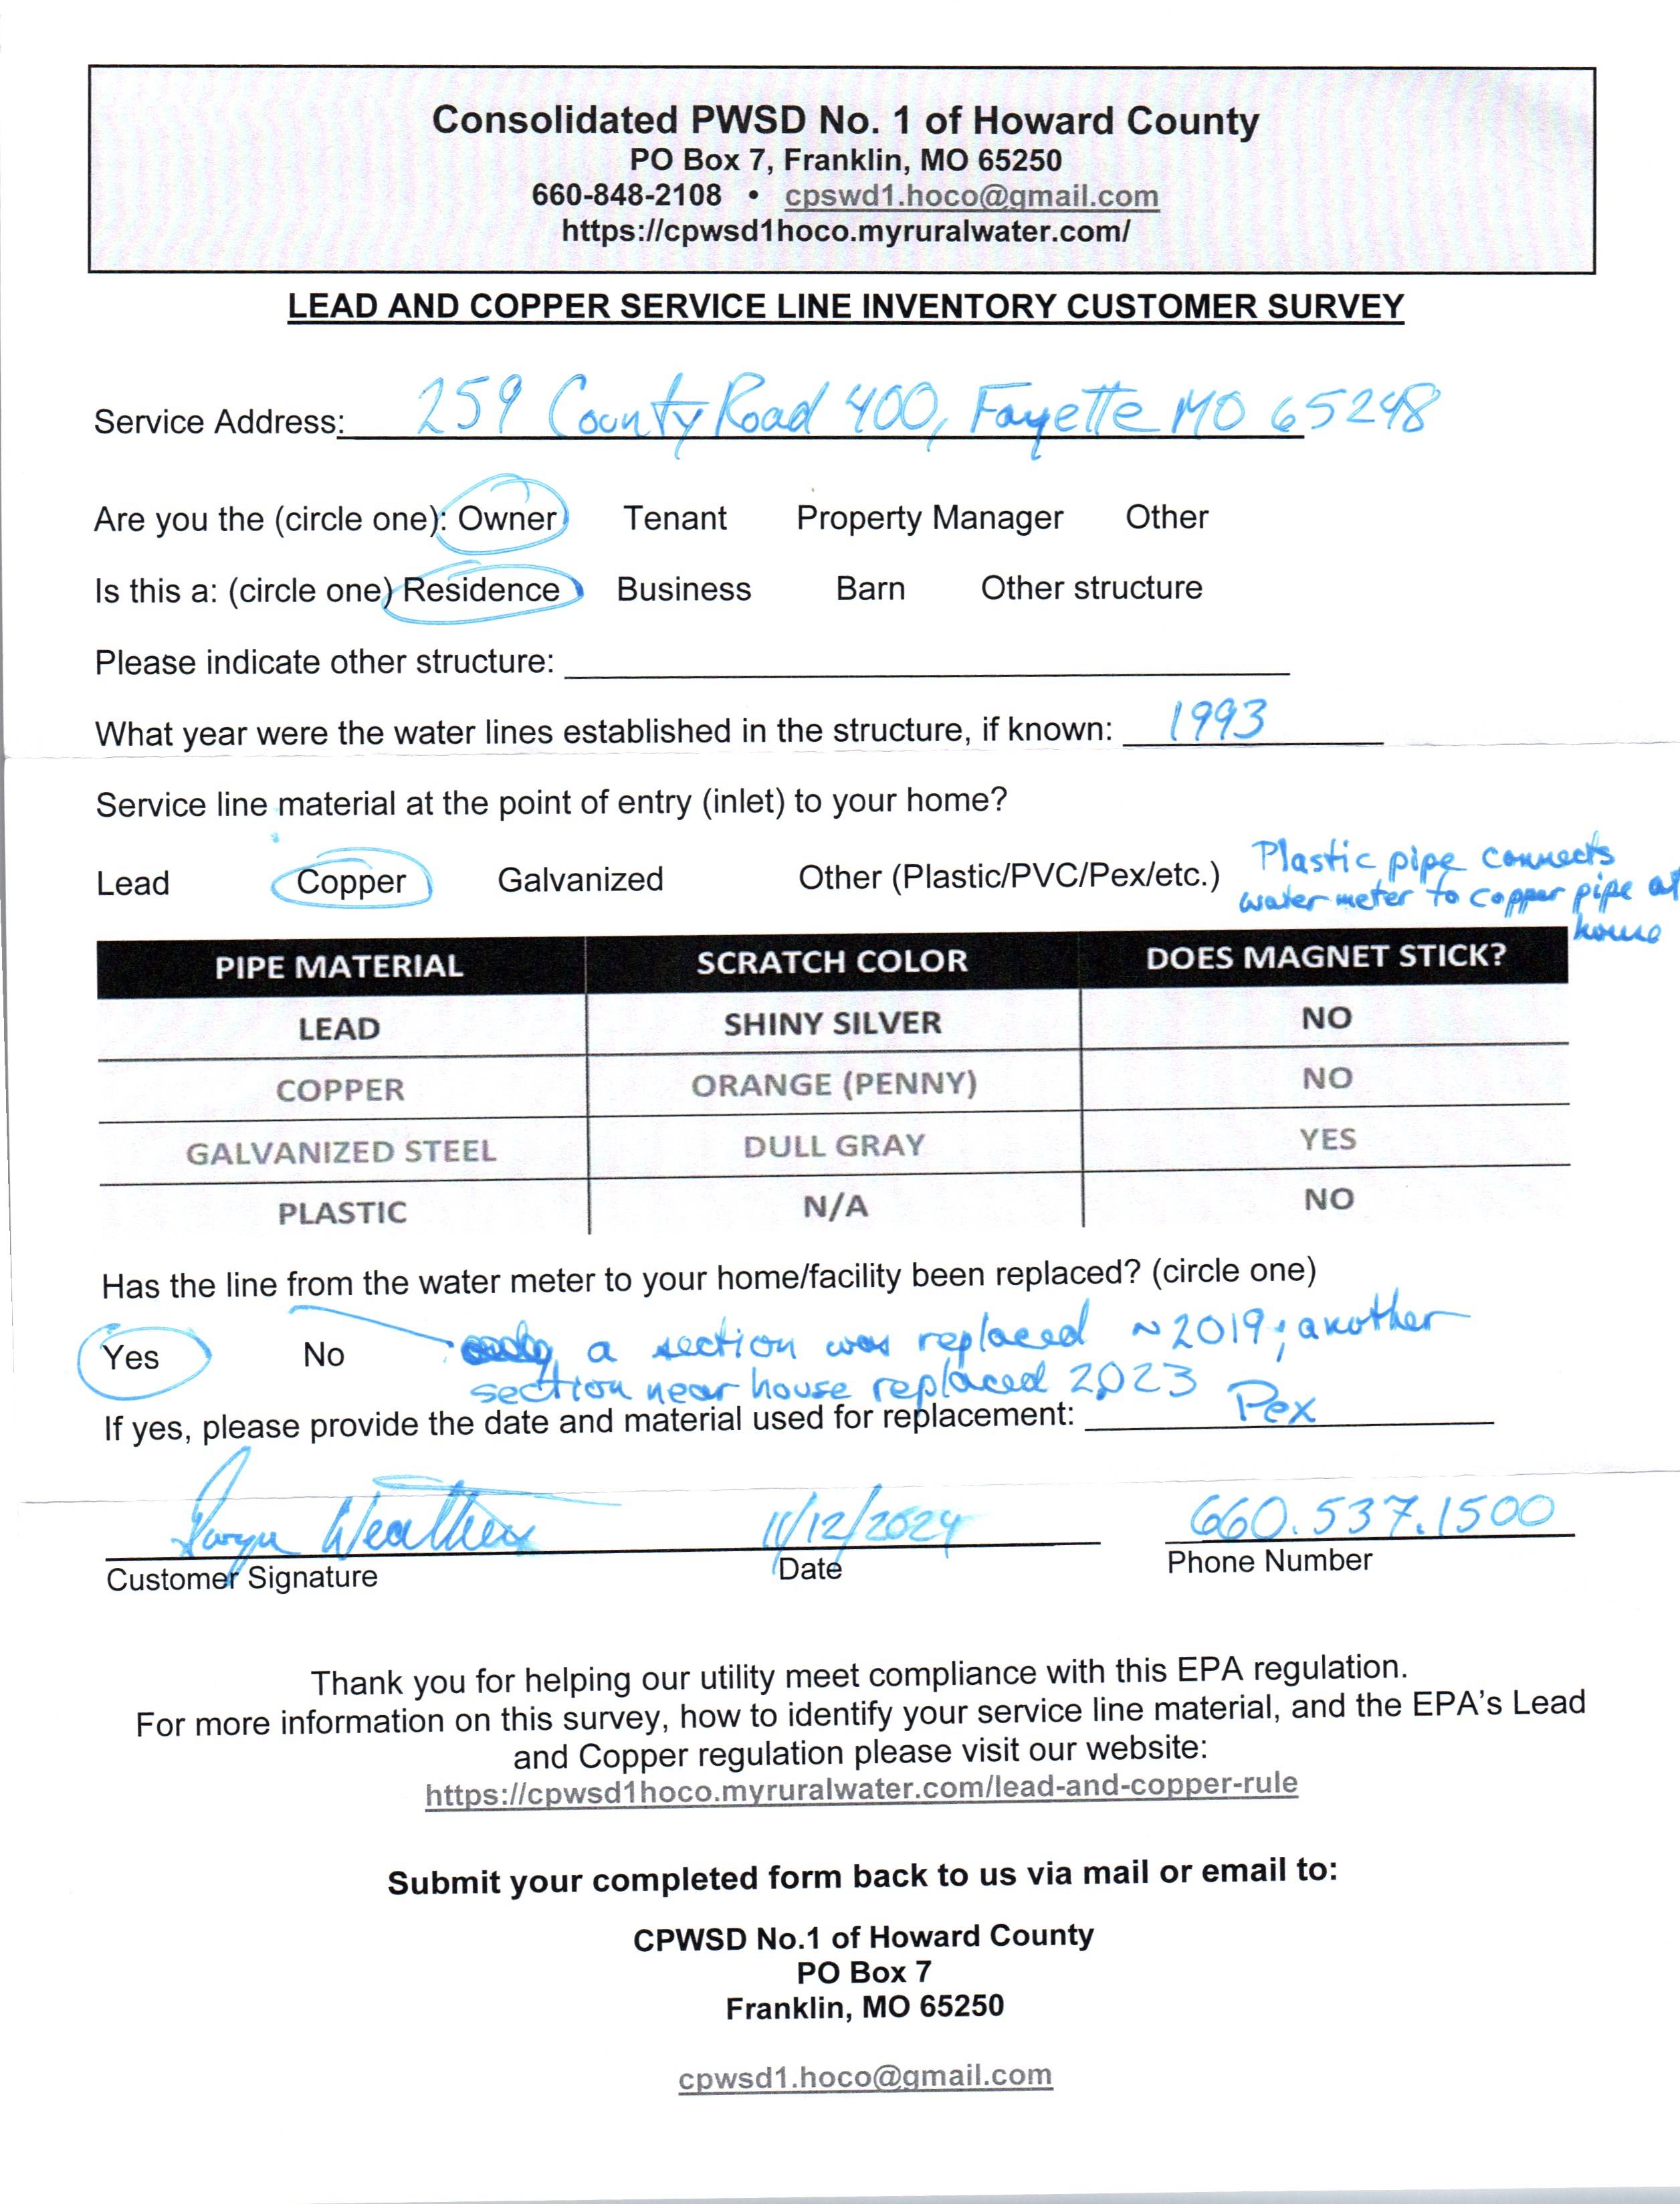 Consolidated PWSD No. 1 of Howard County
PO Box 7, Franklin, MO 65250
660-848-2108 • cpswd1.hoco@gmail.com
https://cpwsd1hoco.myruralwater.com/
LEAD AND COPPER SERVICE LINE INVENTORY CUSTOMER SURVEY
Service Address: 259 County Road 400, Fayette MO 65248
Are you the (circle one): Owner Tenant Property Manager Other
Is this a: (circle one) Residence Business Barn Other structure
Please indicate other structure:
What year were the water lines established in the structure, if known: 1993
Service line material at the point of entry (inlet) to your home?
Lead Copper Galvanized Other (Plastic/PVC/Pex/etc.) Plastic pipe connects
water meter to copper pipe at
house
PIPE MATERIAL SCRATCH COLOR DOES MAGNET STICK?
LEAD SHINY SILVER NO
COPPER ORANGE (PENNY) NO
GALVANIZED STEEL DULL GRAY YES
PLASTIC N/A NO
Has the line from the water meter to your home/facility been replaced? (circle one)
Yes No a section was replaced ~2019; another
section near house replaced 2023
If yes, please provide the date and material used for replacement: Pex
11/12/2024 660.537.1500
Customer Signature Date Phone Number
Thank you for helping our utility meet compliance with this EPA regulation.
For more information on this survey, how to identify your service line material, and the EPA's Lead
and Copper regulation please visit our website:
https://cpwsd1hoco.myruralwater.com/lead-and-copper-rule
Submit your completed form back to us via mail or email to:
CPWSD No.1 of Howard County
PO Box 7
Franklin, MO 65250
cpwsd1.hoco@gmail.com